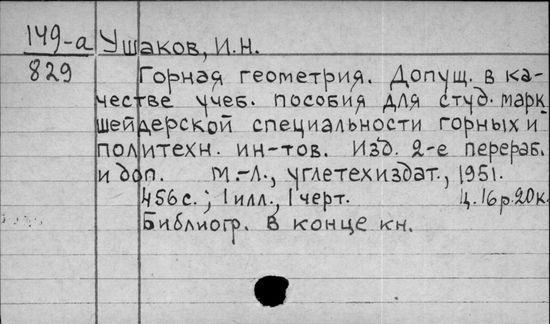 149-а Ушаков, И.Н.
829
Горная геометрия. Допущ. в ка-
честве учеб. пособия для студ. марк
шейдерской специальности горных и
политехн. ин-тов. Изд. 2-е перераб.
и доп. М.-Л., углетехиздат., 1951.
456 с.; 1 илл., 1 черт. Ц. 16 р. 20 к.
Библиогр. в конце кн.